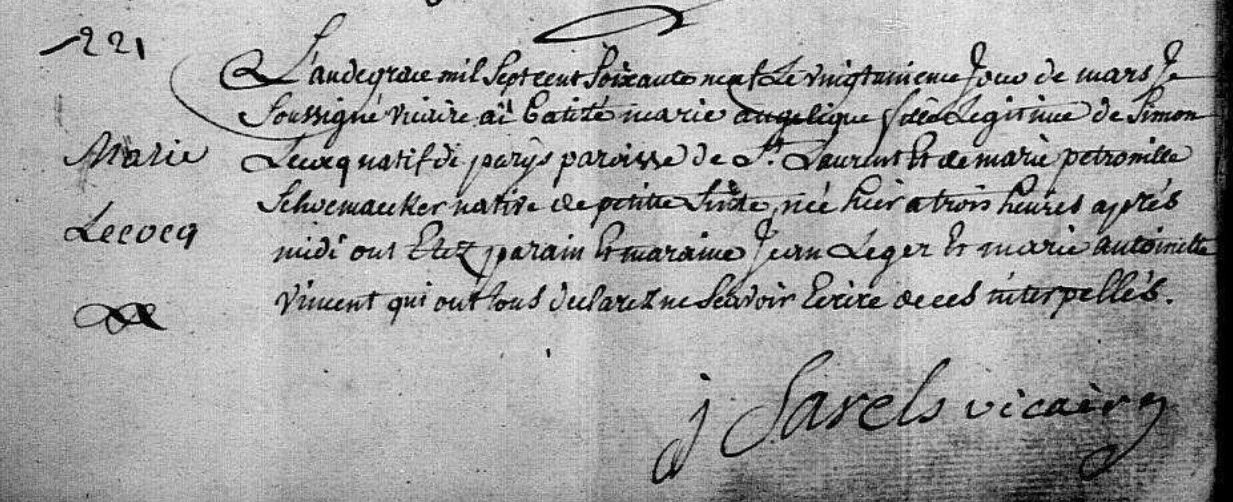 221
L'an de grace mil Sept cent Soixante neuf Le vingtunieme Jour de mars Je
Soussigné vicaire ai batisé marie angelique fille Legitime de Simon
Marie
Lecocq natif de parys paroisse de St. Laurent Et de marie petronille
Schoemaecker native de petitte Sinte, née hier a trois heures aprés
Lecocq
midi ont Etez parain Et maraine Jean Leger Et marie antoinette
vincent qui ont tous declarez ne Scavoir Ecrire de ces interpellés.
j Sarels vicaire